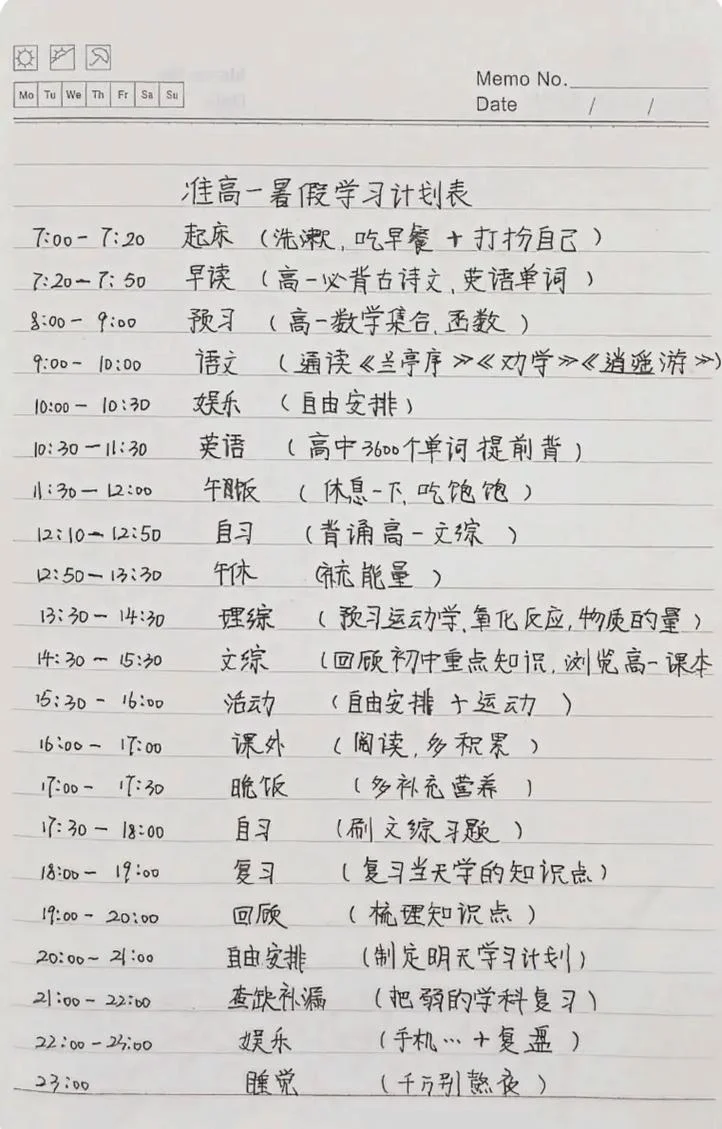 Mo Tu We Th Fr Sa Su
Memo No.
Date / /
准高一暑假学习计划表
7:00 - 7:20 起床 (洗漱, 吃早餐 + 打扮自己)
7:20 - 7:50 早读 (高一必背古诗文, 英语单词)
8:00 - 9:00 预习 (高一数学集合, 函数)
9:00 - 10:00 语文 (通读《兰亭序》《劝学》《逍遥游》)
10:00 - 10:30 娱乐 (自由安排)
10:30 - 11:30 英语 (高中3600个单词提前背)
11:30 - 12:00 午饭 (休息一下, 吃饱饱)
12:10 - 12:50 自习 (背诵高一文综)
12:50 - 13:30 午休 (补充能量)
13:30 - 14:30 理综 (预习运动学, 氧化反应, 物质的量)
14:30 - 15:30 文综 (回顾初中重点知识, 浏览高一课本
15:30 - 16:00 活动 (自由安排 + 运动)
16:00 - 17:00 课外 (阅读, 多积累)
17:00 - 17:30 晚饭 (多补充营养)
17:30 - 18:00 自习 (刷文综习题)
18:00 - 19:00 复习 (复习当天学的知识点)
19:00 - 20:00 回顾 (梳理知识点)
20:00 - 21:00 自由安排 (制定明天学习计划)
21:00 - 22:00 查缺补漏 (把弱的学科复习)
22:00 - 23:00 娱乐 (手机… + 复盘)
23:00 睡觉 (千万别熬夜)